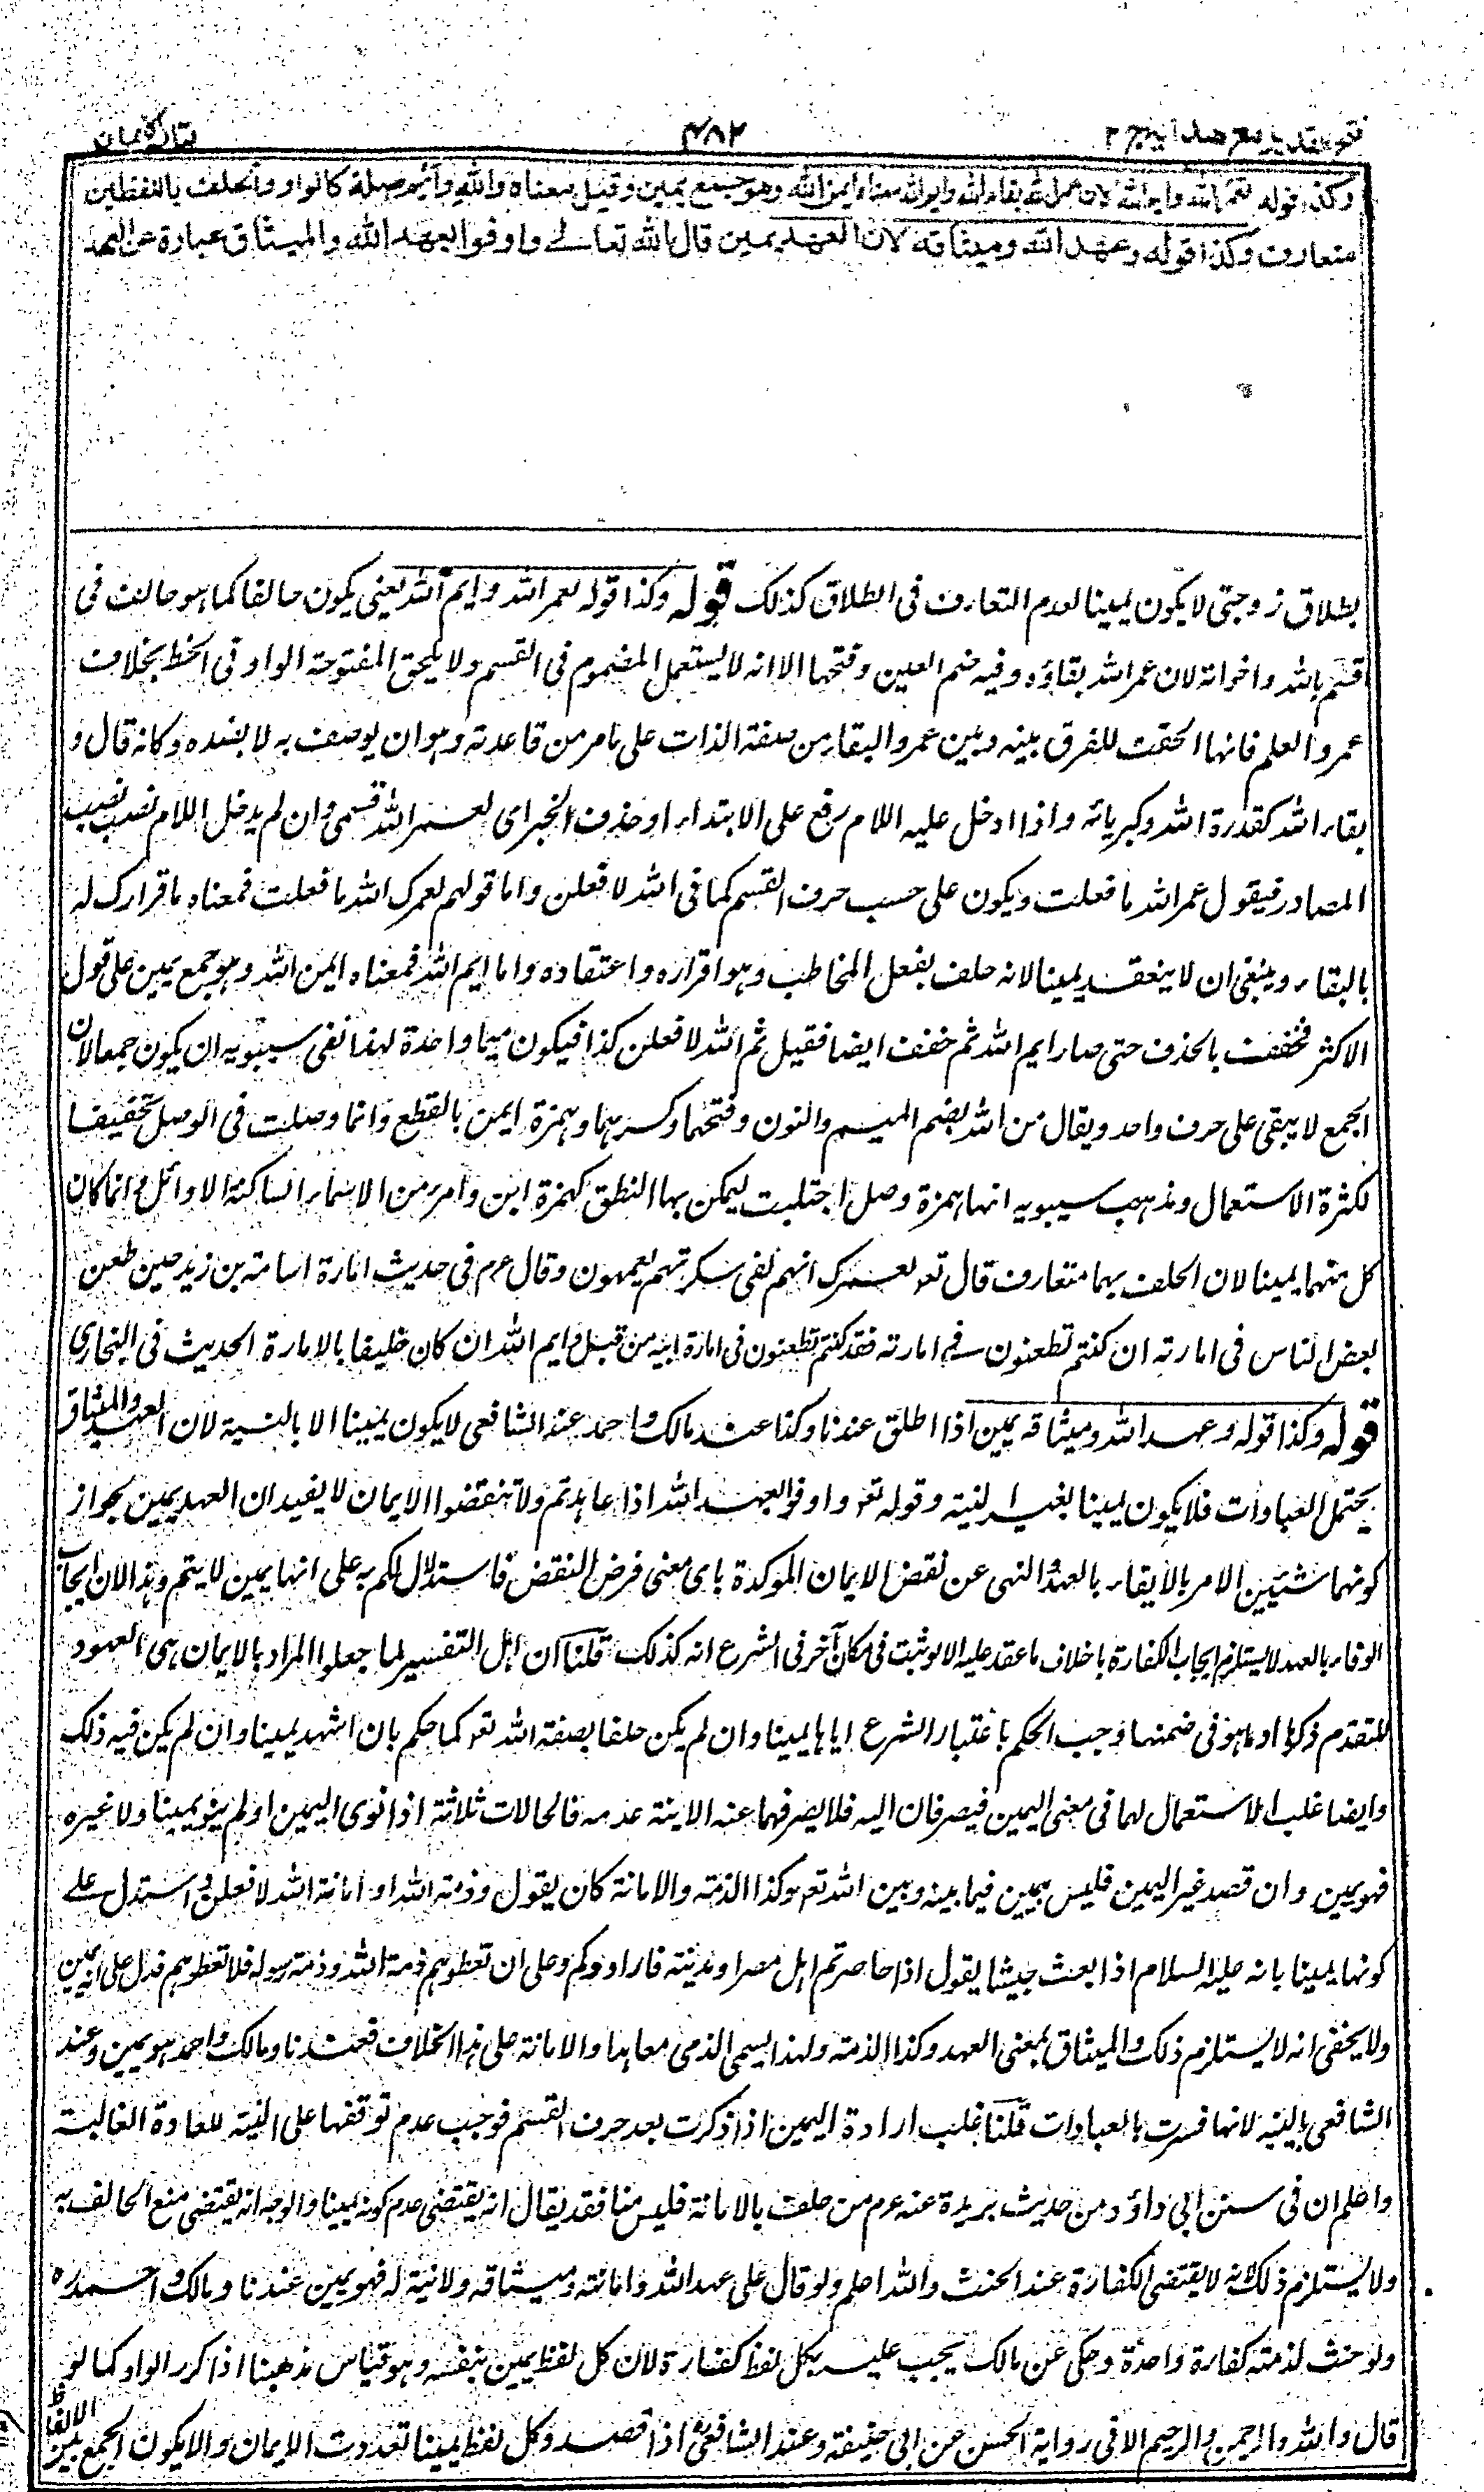 فتح القدير مع هداية ج ٢
٤٨٢
كتاب الايمان
وكذا قوله لعمر الله وايم الله لان عمر الله بقاء الله وايم الله معناه ايمن الله وهو جمع يمين وقيل معناه والله وايم صلة كالواو والحلف باللفظين
متعارف وكذا قوله وعهد الله وميثاقه لان العهد يمين قال الله تعالى واوفوا بعهد الله والميثاق عبارة عن العهد
بطلاق زوجتى لا يكون يمينا لعدم التعارف فى الطلاق كذلك قوله وكذا قوله لعمر الله وايم الله يعنى يكون حالفا كما هو حالف فى
اقسم بالله واخواته لان عمر الله بقاؤه وفيه ضم العين وفتحها الا انه لا يستعمل المضموم فى القسم ولا يلحق المفتوحة الواو فى الخط بخلاف
عمرو العلم فانها الحقت للفرق بينه وبين عمر والبقاء من صفة الذات على ما مر من قاعدته وهو ان يوصف به لا بضده وكانه قال و
بقاء الله كقدرة الله وكبريائه واذا ادخل عليه اللام رفع على الابتداء او حذف الخبر اى لعمر الله قسمى وان لم يدخل اللام نصب نصب
المصادر فيقول عمر الله ما فعلت ويكون على حسب حرف القسم كما فى الله لافعلن واما قولهم لعمرك الله ما فعلت فمعناه باقرارك له
بالبقاء وينبغى ان لا ينعقد يمينا لانه حلف بفعل المخاطب وهو اقراره واعتقاده واما ايم الله فمعناه ايمن الله وهو جمع يمين على قول
الاكثر فخففت بالحذف حتى صار ايم الله ثم خفف ايضا فقيل م الله لافعلن كذا فيكون ميما واحدة لهذا نفى سيبويه ان يكون جمعا لان
الجمع لا يبقى على حرف واحد ويقال من الله بضم الميم والنون وفتحهما وكسرهما وهمزة ايمن بالقطع وانما وصلت فى الوصل تخفيفا
لكثرة الاستعمال ومذهب سيبويه انها همزة وصل اجتلبت ليمكن بها النطق كهمزة ابن وامرء من الاسماء الساكنة الاوائل وانما كان
كل منهما يمينا لان الحلف بهما متعارف قال تعـ لعمرك انهم لفى سكرتهم يعمهون وقال عرم فى حديث امارة اسامة بن زيد حين طعن
بعض الناس فى امارته ان كنتم تطعنون فى امارته فقد كنتم تطعنون فى امارة ابيه من قبل وايم الله ان كان خليقا بالامارة الحديث فى البخارى
قوله وكذا قوله وعهد الله وميثاقه يمين اذا اطلق عندنا وكذا عند مالك واحمد عند الشافعى لا يكون يمينا الا بالنية لان العهد والميثاق
يحتمل العبادات فلا يكون يمينا بغير لنية وقوله تعـ واوفوا بعهد الله اذا عاهدتم ولا تنقضوا الايمان لا يفيد ان العهد يمين بجواز
كونهما شيئين الامر بالايفاء بالعهد والنهى عن نقض الايمان المؤكدة باى معنى فرض النقض فاستدلالكم به على انها يمين لا يتم وهذا لان ايجاب
الوفاء بالعهد لا يستلزم ايجاب الكفارة باخلاف ما عقد عليه الا لو ثبت فى مكان آخر فى الشرع انه كذلك قلنا ان اهل التفسير لما جعلوا المراد بالايمان هى العهود
المتقدم ذكرها او ما هو فى ضمنها وجب الحكم باعتبار الشرع اياها يمينا وان لم يكن حلفا بصفة الله تعـ كما حكم بان اشهد يمينا وان لم يكن فيه ذلك
وايضا غلب الاستعمال لهما فى معنى اليمين فيصرفان اليه فلا يصرفهما عنه الا نية عدمه فالحالات ثلاثة اذا نوى اليمين او لم ينو يمينا ولا غيره
فهو يمين وان قصد غير اليمين فليس بيمين فيما بينه وبين الله تعـ وكذا الذمة والامانة كان يقول وذمة الله او امانة الله لافعلن واستدل على
كونها يمينا بانه عليه السلام اذا بعث جيشا يقول اذا حاصرتم اهل مصر او مدينة فارادوكم وعلى ان تعطوهم ذمة الله وذمة رسوله فلا تعطوهم فدل على انه يمين
ولا يخفى انه لا يستلزم ذلك والميثاق بمعنى العهد وكذا الذمة ولهذا يسمى الذمى معاهدا والامانة على هذا الخلاف فعندنا ومالك واحمد هو يمين وعند
الشافعى بالنية لانها فسرت بالعبادات قلنا غلب ارادة اليمين اذا ذكرت بعد حرف القسم فوجب عدم توقفها على النية للعادة الغالبة
واعلم ان فى سنن ابى داؤد من حديث بريدة عنه عرم من حلف بالامانة فليس منا فقد يقال انه يقتضى عدم كونه يمينا والوجه انه يقتضى منع الحالف به
ولا يستلزم ذلك لانه لا يقتضى الكفارة عند الحنث والله اعلم ولو قال على عهد الله وامانته وميثاقه ولا نية له فهو يمين عندنا ومالك واحمد ره
ولو حنث لذمته كفارة واحدة وحكى عن مالك يجب عليه بكل لفظ كفارة لان كل لفظ يمين بنفسه وهو قياس مذهبنا اذا كرر الواو كما لو
قال والله والرحمن والرحيم الا فى رواية الحسن عن ابى حنيفة وعند الشافعى اذا قصد وكل لفظ يمينا تعددت الايمان والا يكون الجمع بين الالفاظ